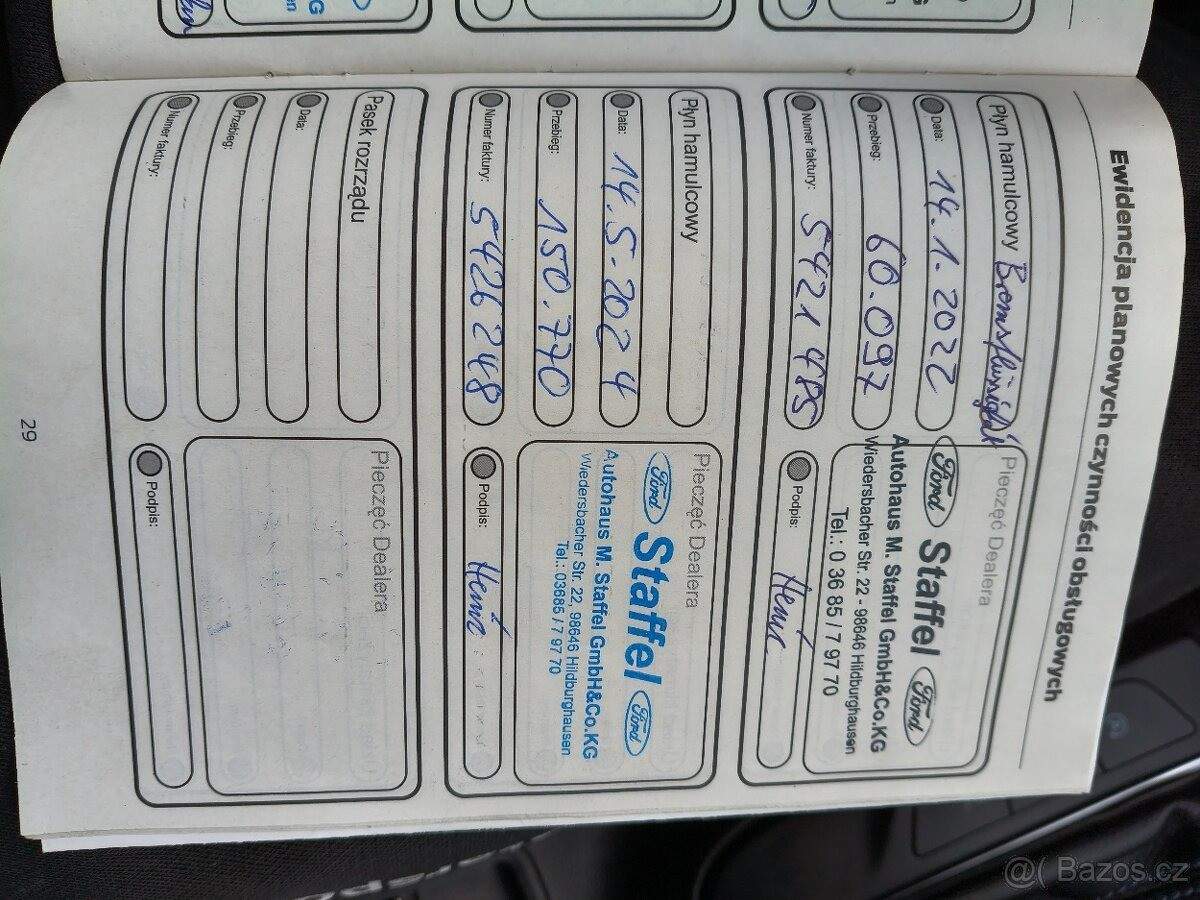 Ewidencja planowych czynności obsługowych
Płyn hamulcowy Bremsflüssigkeit
Data: 14.1.2022
Przebieg: 60.097
Numer faktury: 5421485
Pieczęć Dealera
Ford Staffel Ford
Autohaus M. Staffel GmbH&Co.KG
Wiedersbacher Str. 22 - 98646 Hildburghausen
Tel.: 0 36 85 / 7 97 70
Podpis:
Płyn hamulcowy
Data: 14.5.2024
Przebieg: 150.770
Numer faktury: 5426248
Pieczęć Dealera
Ford Staffel Ford
Autohaus M. Staffel GmbH&Co.KG
Wiedersbacher Str. 22, 98646 Hildburghausen
Tel.: 03685 / 7 97 70
Podpis:
Pasek rozrządu
Data:
Przebieg:
Numer faktury:
Pieczęć Dealera
Podpis:
29
@( Bazos.cz